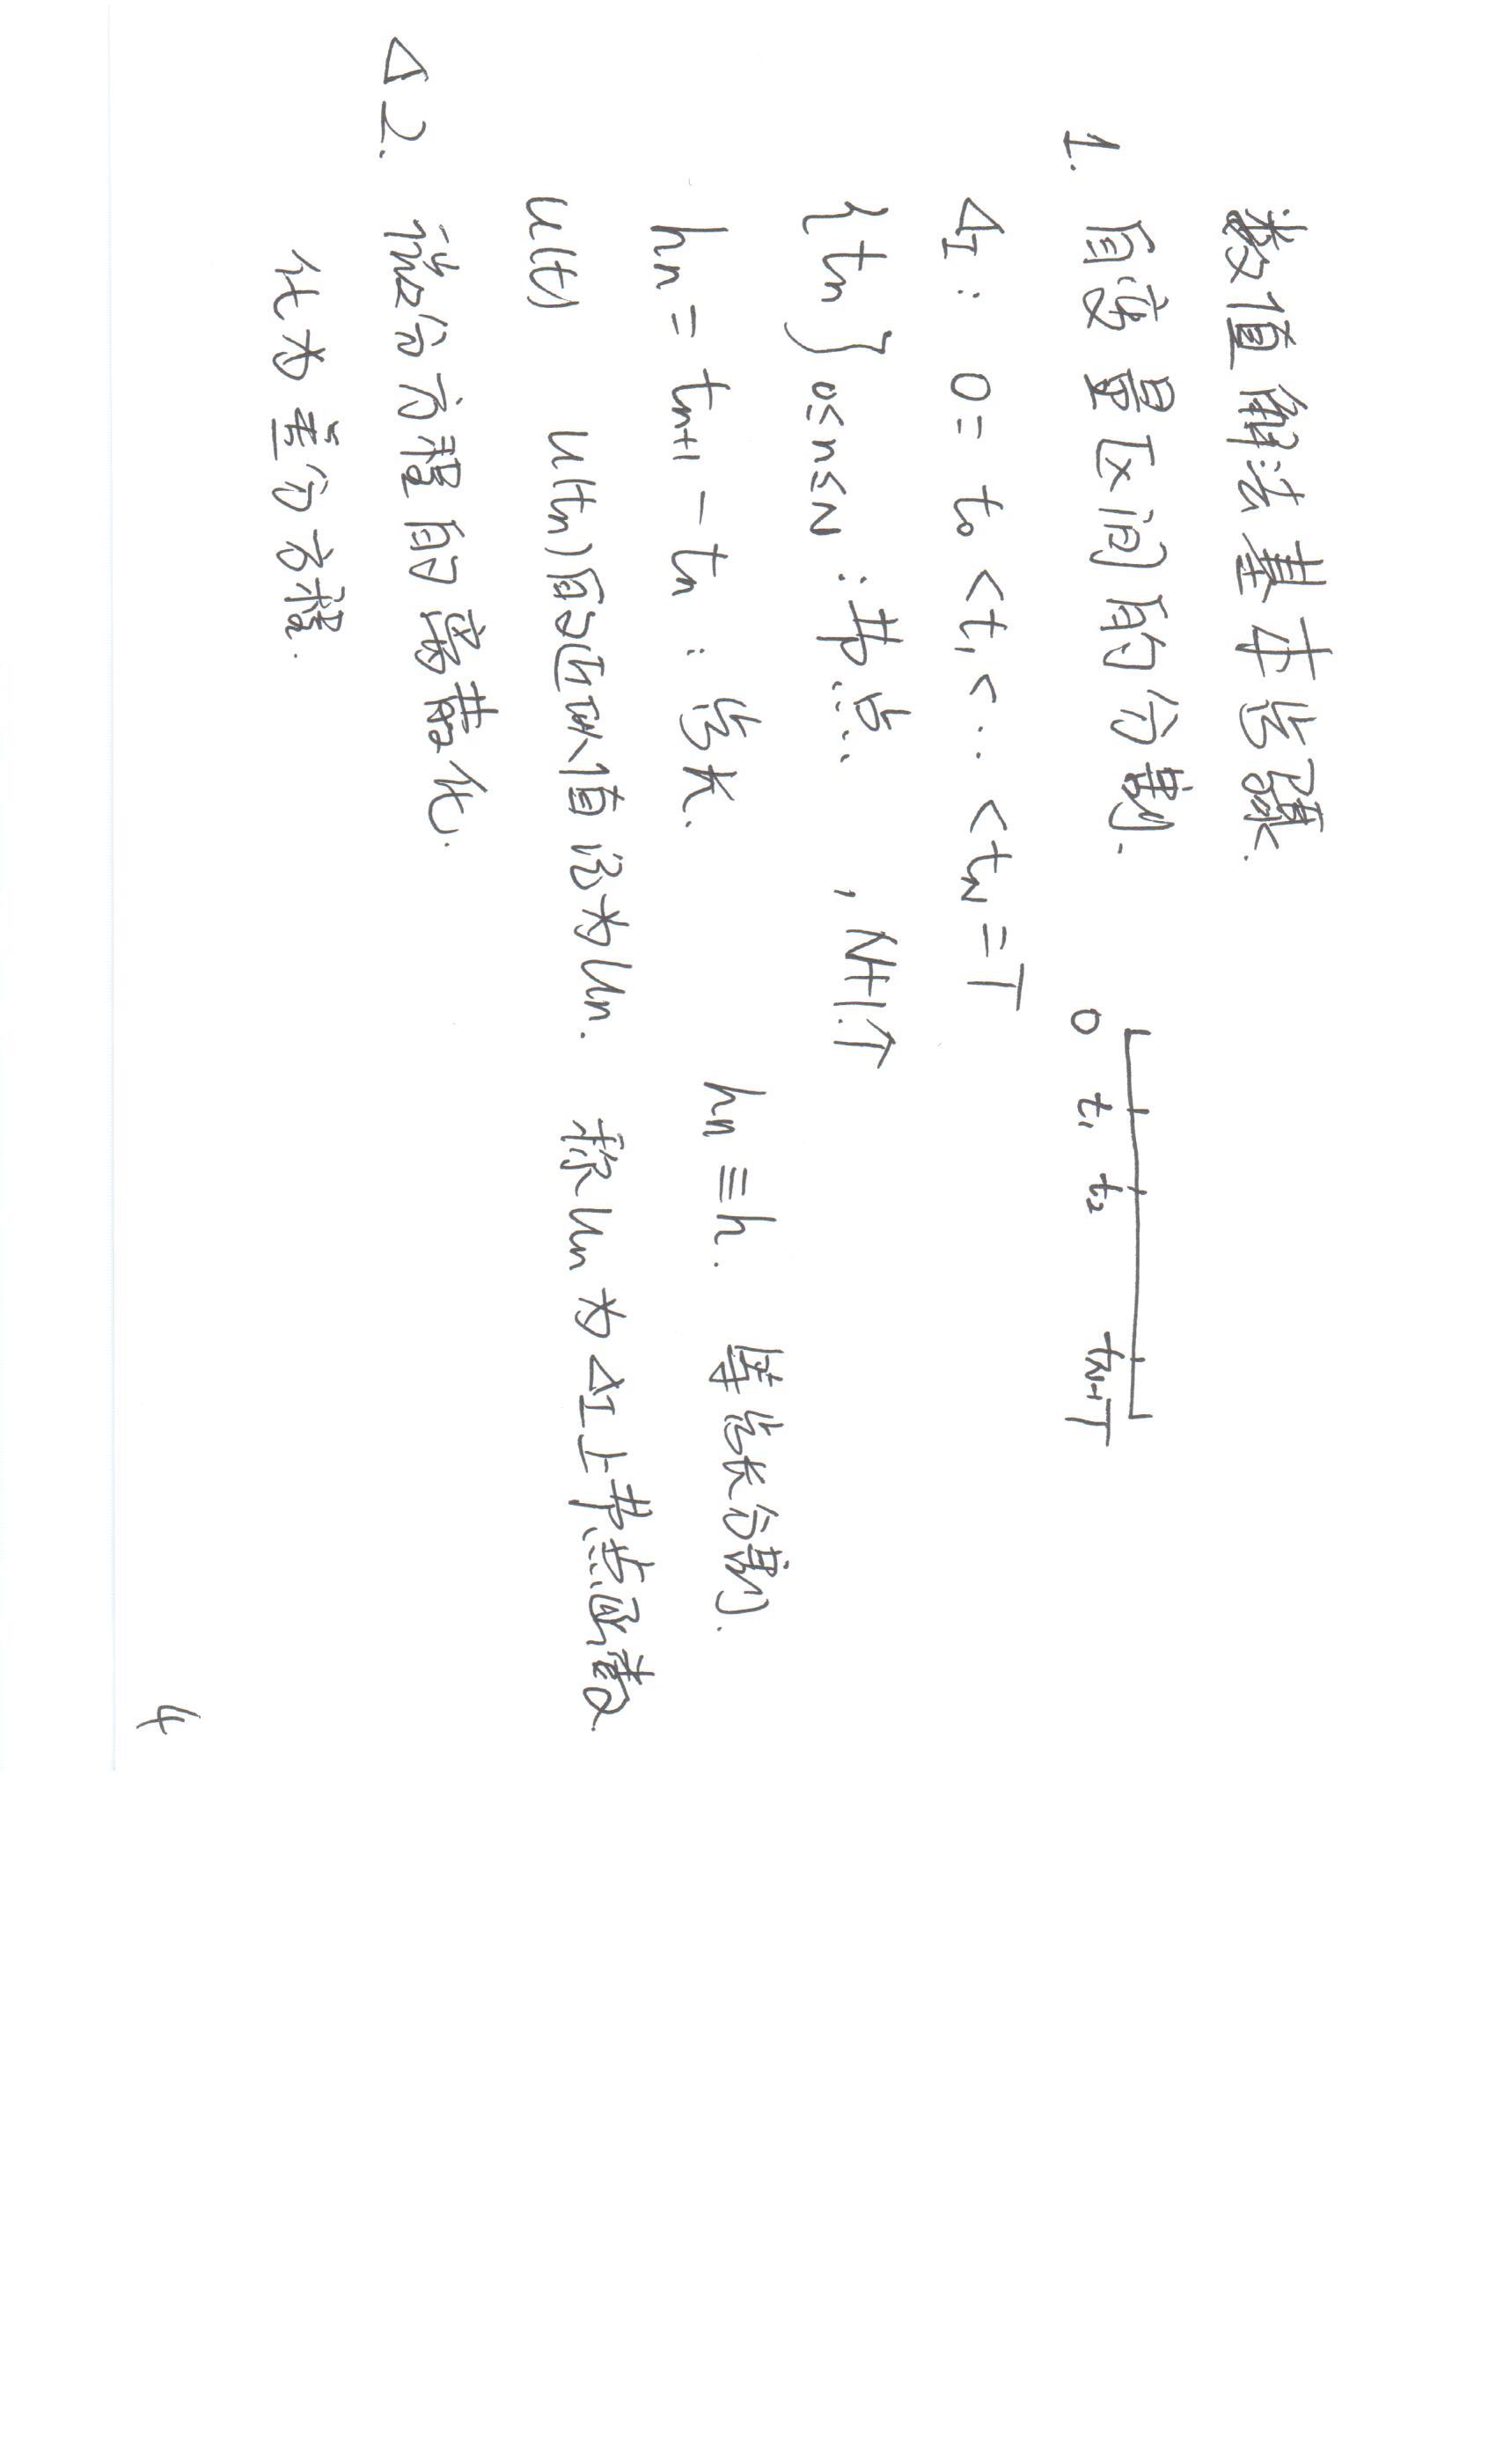 数值解法基本步骤.
1. 自变量区间的分割.
0 t₁ t₂ t_{N-1} T
Δ_I: 0 = t₀ < t₁ < .. < t_N = T
{t_n}_{0≤n≤N} : 节点. , N+1个
h_n = t_{n+1} - t_n : 步长. h_n ≡ h. 等步长分割.
u(t) u(t_n)的近似值记为u_n. 称u_n为Δ_I上节点函数.
Δ2. 微分方程的离散化.
化为差分方程.
4